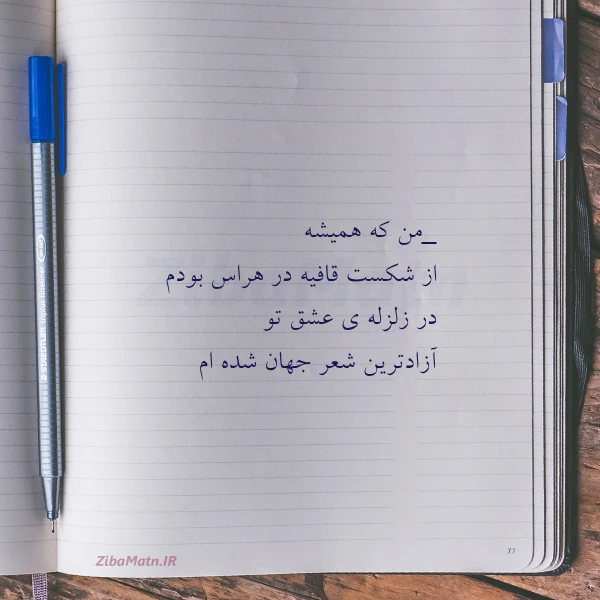 _من که همیشه
از شکست قافیه در هراس بودم
در زلزله ی عشق تو
آزادترین شعر جهان شده ام
77
ZibaMatn.IR